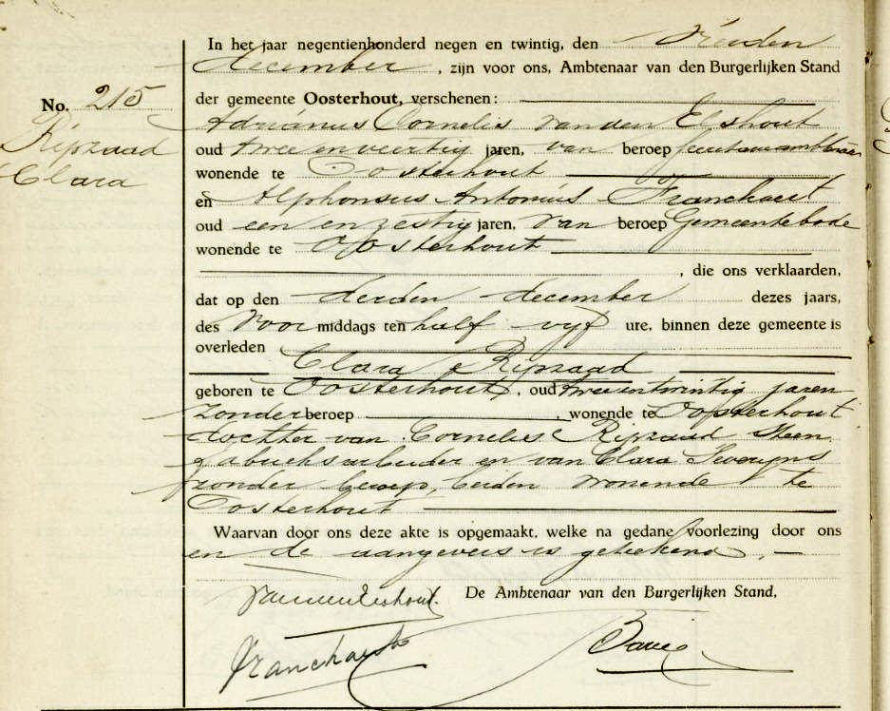 In het jaar negentienhonderd negen en twintig, den
december, zijn voor ons, Ambtenaar van den Burgerlijken Stand
No. 215
der gemeente Oosterhout, verschenen:
Ripzaad
Clara
Adrianus Cornelis van den Elshout
oud twee en veertig jaren, van beroep
wonende te Oosterhout
en Alphonsus Antonius Franckaert
oud een en zestig jaren, van beroep Gemeentebode
wonende te Oosterhout
, die ons verklaarden,
dat op den derden december dezes jaars,
des voormiddags ten half vijf ure, binnen deze gemeente is
overleden
Clara Ripzaad
geboren te Oosterhout, oud twee en twintig jaren
zonder beroep, wonende te Oosterhout
dochter van Cornelis Ripzaad steen
fabrieksarbeider en van Clara
zonder beroep, beiden wonende te
Oosterhout
Waarvan door ons deze akte is opgemaakt, welke na gedane voorlezing door ons
en de aangevers is geteekend.
De Ambtenaar van den Burgerlijken Stand,
Franckaert